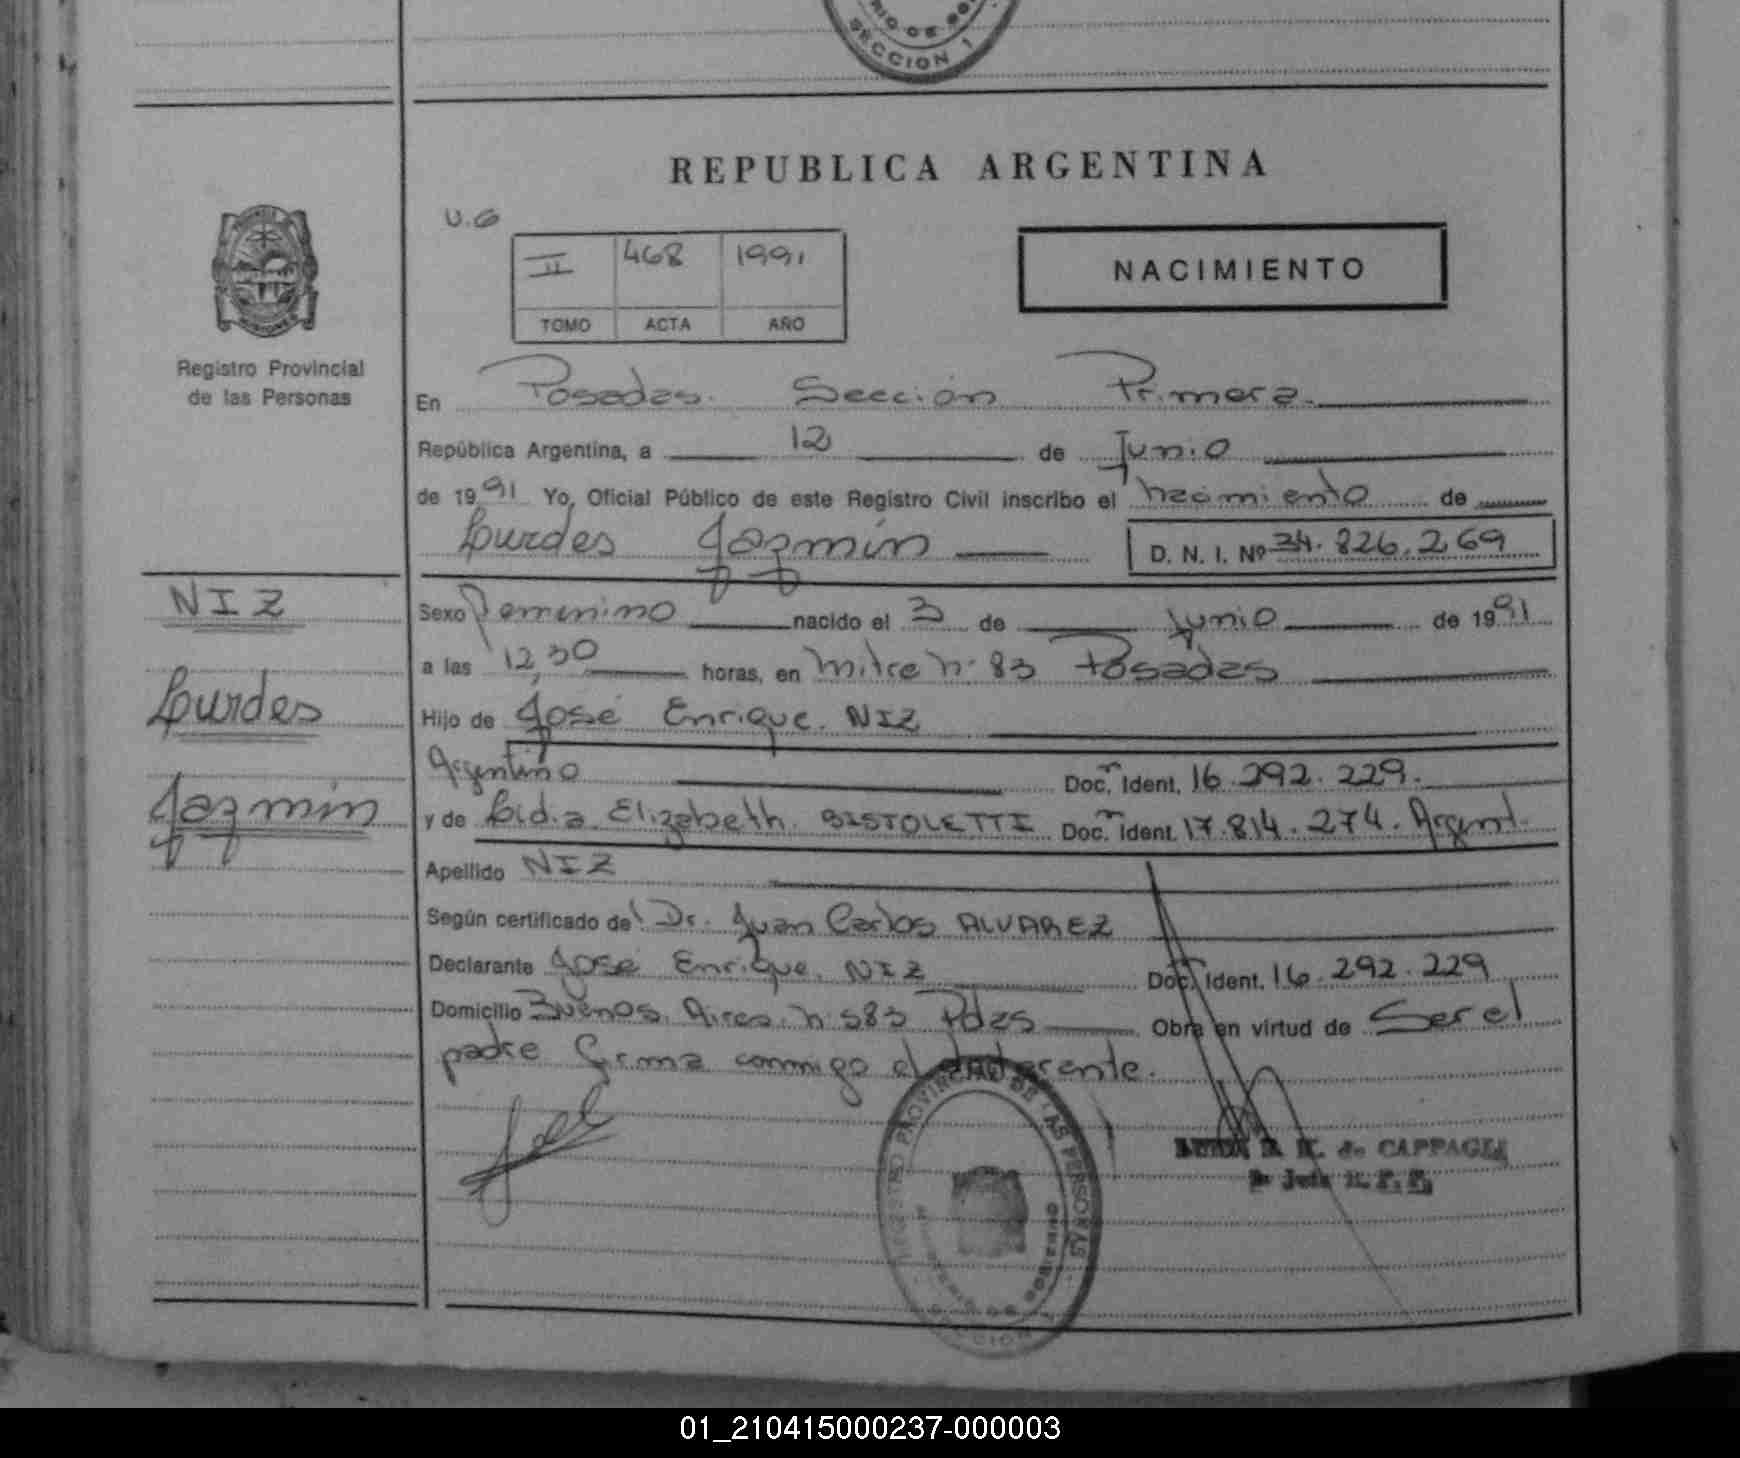 SECCION 1
REPUBLICA ARGENTINA
U.G
II 468 1991
TOMO ACTA AÑO
NACIMIENTO
MISIONES
Registro Provincial
de las Personas
En Posadas. Sección Primera.
República Argentina, a 12 de Junio
de 1991 Yo, Oficial Público de este Registro Civil inscribo el nacimiento de
Lourdes Jazmín D. N. I. Nº 34.826.269
NIZ
Lourdes
Jazmín
Sexo Femenino nacido el 3 de Junio de 1991
a las 12,30 horas, en Mitre n: 83 Posadas
Hijo de José Enrique. NIZ
Argentino Doc. Ident. 16.292.229.
y de Lidia Elizabeth. BISTOLETTI Doc. Ident. 17.814.274. Argent.
Apellido NIZ
Según certificado del Dr. Juan Carlos ALVAREZ
Declarante José Enrique. NIZ Doc. Ident. 16.292.229
Domicilio Buenos Aires. n: 583 Pdas Obra en virtud de Ser el
padre Firma conmigo el declarante.
REGISTRO PROVINCIAL DE LAS PERSONAS
SECCION 1
de CAPPAGLI
Jefe R. P. P.
01_210415000237-000003